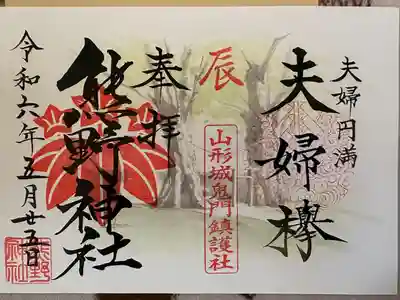 夫婦円満
夫婦欅
辰
山形城鬼門鎮護社
奉拝
熊野神社
令和六年五月廿五日
熊野神社